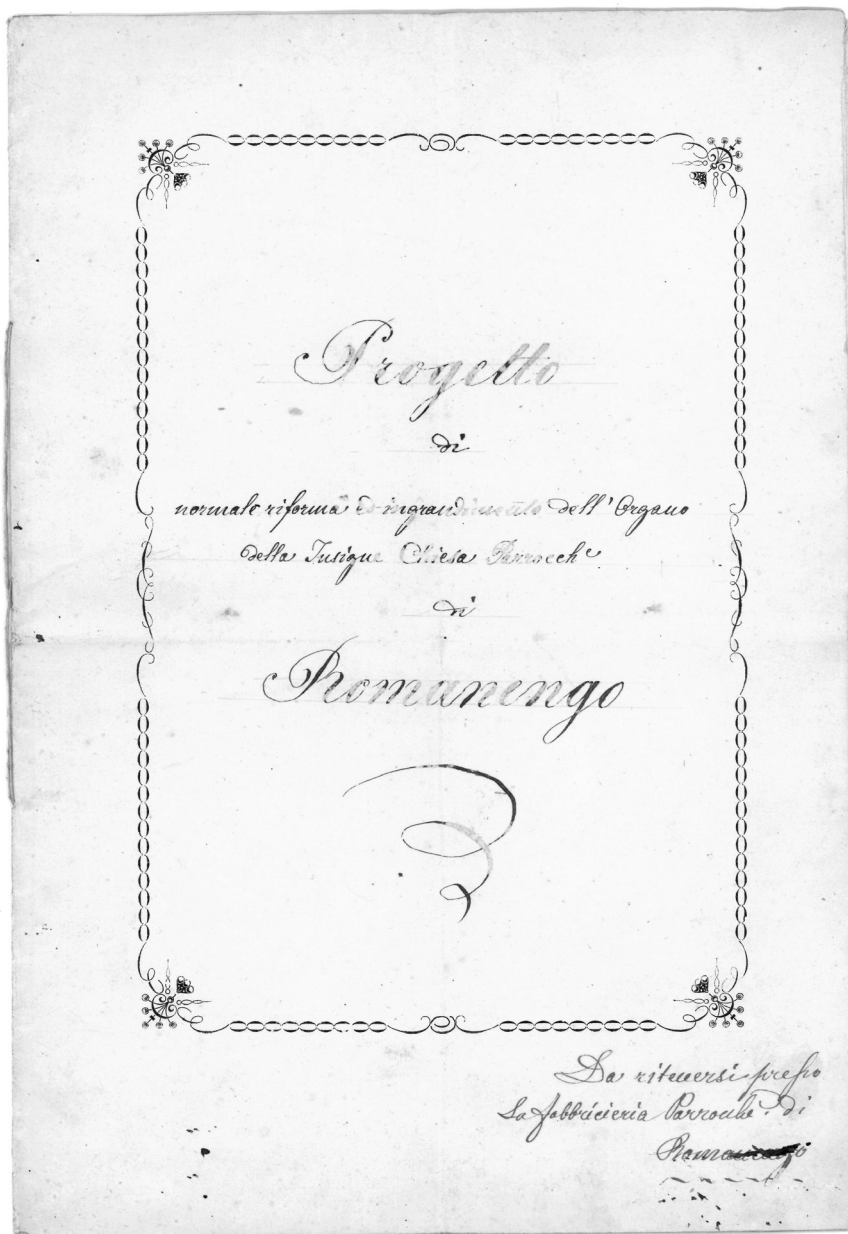 Progetto
di
normale riforma ed ingrandimento dell'Organo
della Insigne Chiesa Parrocch.e
di
Romanengo
Da ritenersi presso
La fabbricieria Parrocch.e di
Romanengo